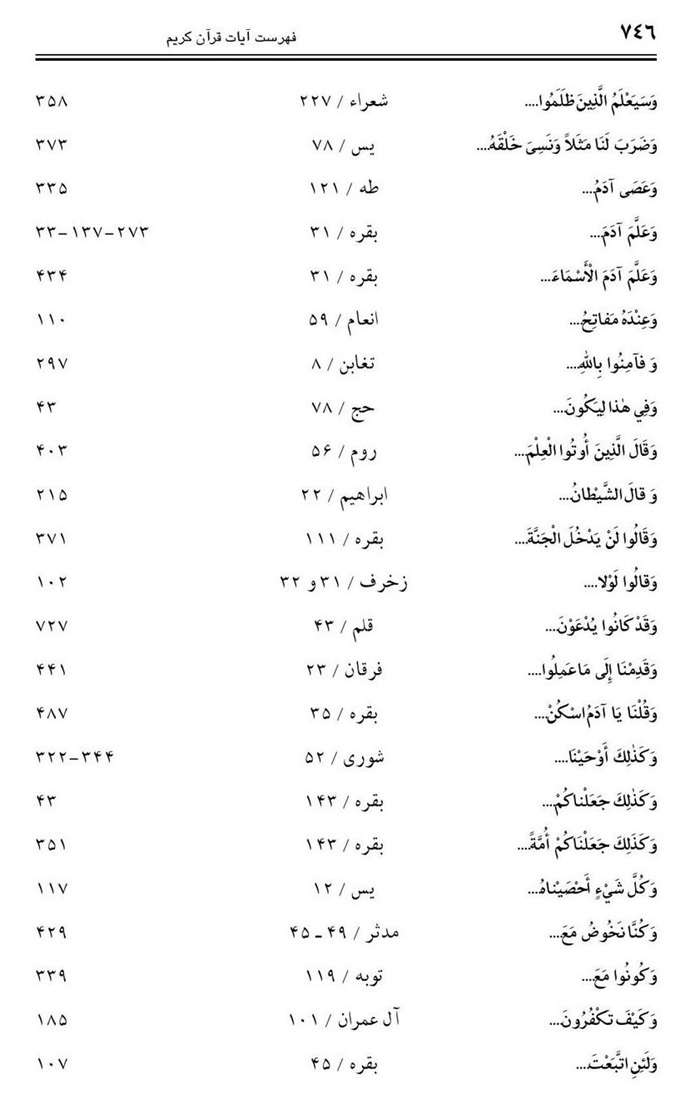 ۷٤٦ فهرست آیات قرآن کریم
وَسَيَعْلَمُ الَّذِينَ ظَلَمُوا.... شعراء / ۲۲۷ ۳۵۸
وَضَرَبَ لَنَا مَثَلاً وَنَسِىَ خَلْقَهُ.... یس / ۷۸ ۳۷۳
وَعَصَى آدَمُ... طه / ۱۲۱ ۳۳۵
وَعَلَّمَ آدَمَ... بقره / ۳۱ ۳۳-۱۳۷-۲۷۳
وَعَلَّمَ آدَمَ الْأَسْمَاءَ... بقره / ۳۱ ۴۳۴
وَعِنْدَهُ مَفاتِحُ... انعام / ۵۹ ۱۱۰
وَ فَآمِنُوا بِاللهِ... تغابن / ۸ ۲۹۷
وَفِي هٰذا لِيَكُونَ... حج / ۷۸ ۴۳
وَقَالَ الَّذِينَ أُوتُوا الْعِلْمَ... روم / ۵۶ ۴۰۳
وَ قالَ الشَّيْطانُ... ابراهیم / ۲۲ ۲۱۵
وَقَالُوا لَنْ يَدْخُلَ الْجَنَّةَ.... بقره / ۱۱۱ ۳۷۱
وَقالُوا لَوْلا.... زخرف / ۳۱ و ۳۲ ۱۰۲
وَقَدْ كَانُوا يُدْعَوْنَ... قلم / ۴۳ ۷۲۷
وَقَدِمْنَا إِلَى مَا عَمِلُوا.... فرقان / ۲۳ ۴۴۱
وَقُلْنَا يَا آدَمُ اسْكُنْ... بقره / ۳۵ ۴۸۷
وَكَذٰلِكَ أَوْحَيْنَا.... شوری / ۵۲ ۳۲۲-۳۴۴
وَكَذٰلِكَ جَعَلْناكُمْ... بقره / ۱۴۳ ۴۳
وَكَذَلِكَ جَعَلْنَاكُمْ أُمَّةً... بقره / ۱۴۳ ۳۵۱
وَكُلَّ شَيْءٍ أَحْصَيْناهُ... یس / ۱۲ ۱۱۷
وَكُنَّا نَخُوضُ مَعَ... مدثر / ۴۹ ـ ۴۵ ۴۲۹
وَكُونُوا مَعَ... توبه / ۱۱۹ ۳۳۹
وَكَيْفَ تَكْفُرُونَ... آل عمران / ۱۰۱ ۱۸۵
وَلَئِنِ اتَّبَعْتَ... بقره / ۴۵ ۱۰۷